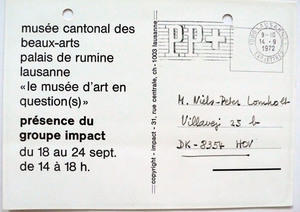 musée cantonal des
beaux-arts
palais de rumine
lausanne
«le musée d'art en
question(s)»
présence du
groupe impact
du 18 au 24 sept.
de 14 à 18 h.
copyright - impact - 31, rue centrale, ch - 1003 lausanne
P.P+
LAUSANNE
14 - 9
1972
M. Niels-Peter Lomholt
Villavej 25 b
DK-8354 HOV